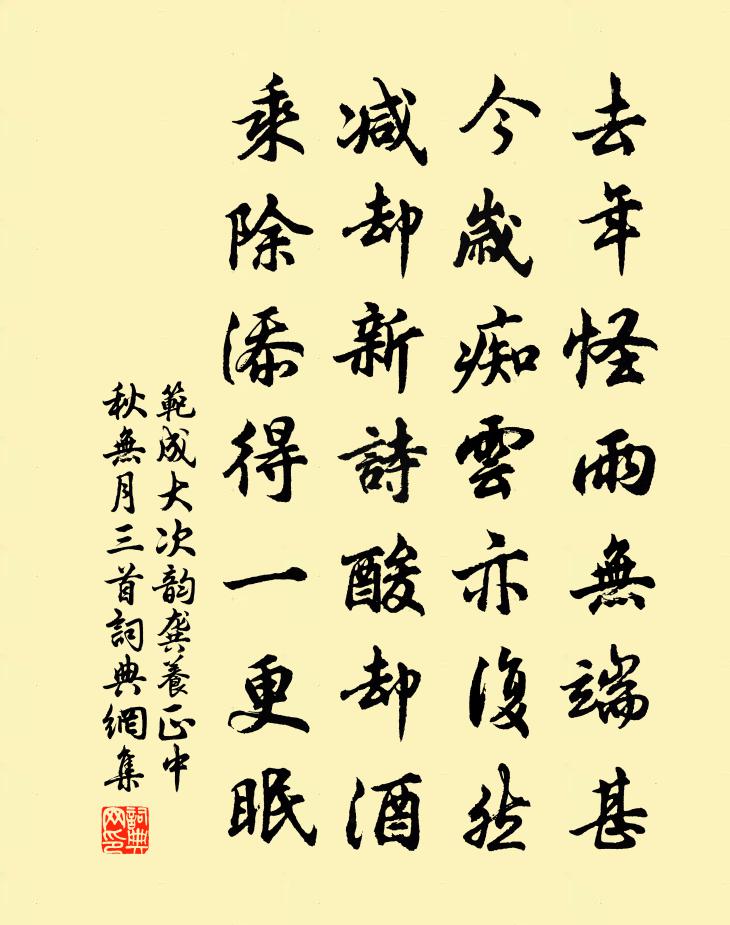 去年怪雨無端甚
今歲痴雲亦復然
減却新詩酸却酒
乘除添得一更眠
範成大次韵龔養正中
秋無月三首詞典網集
詞典网印